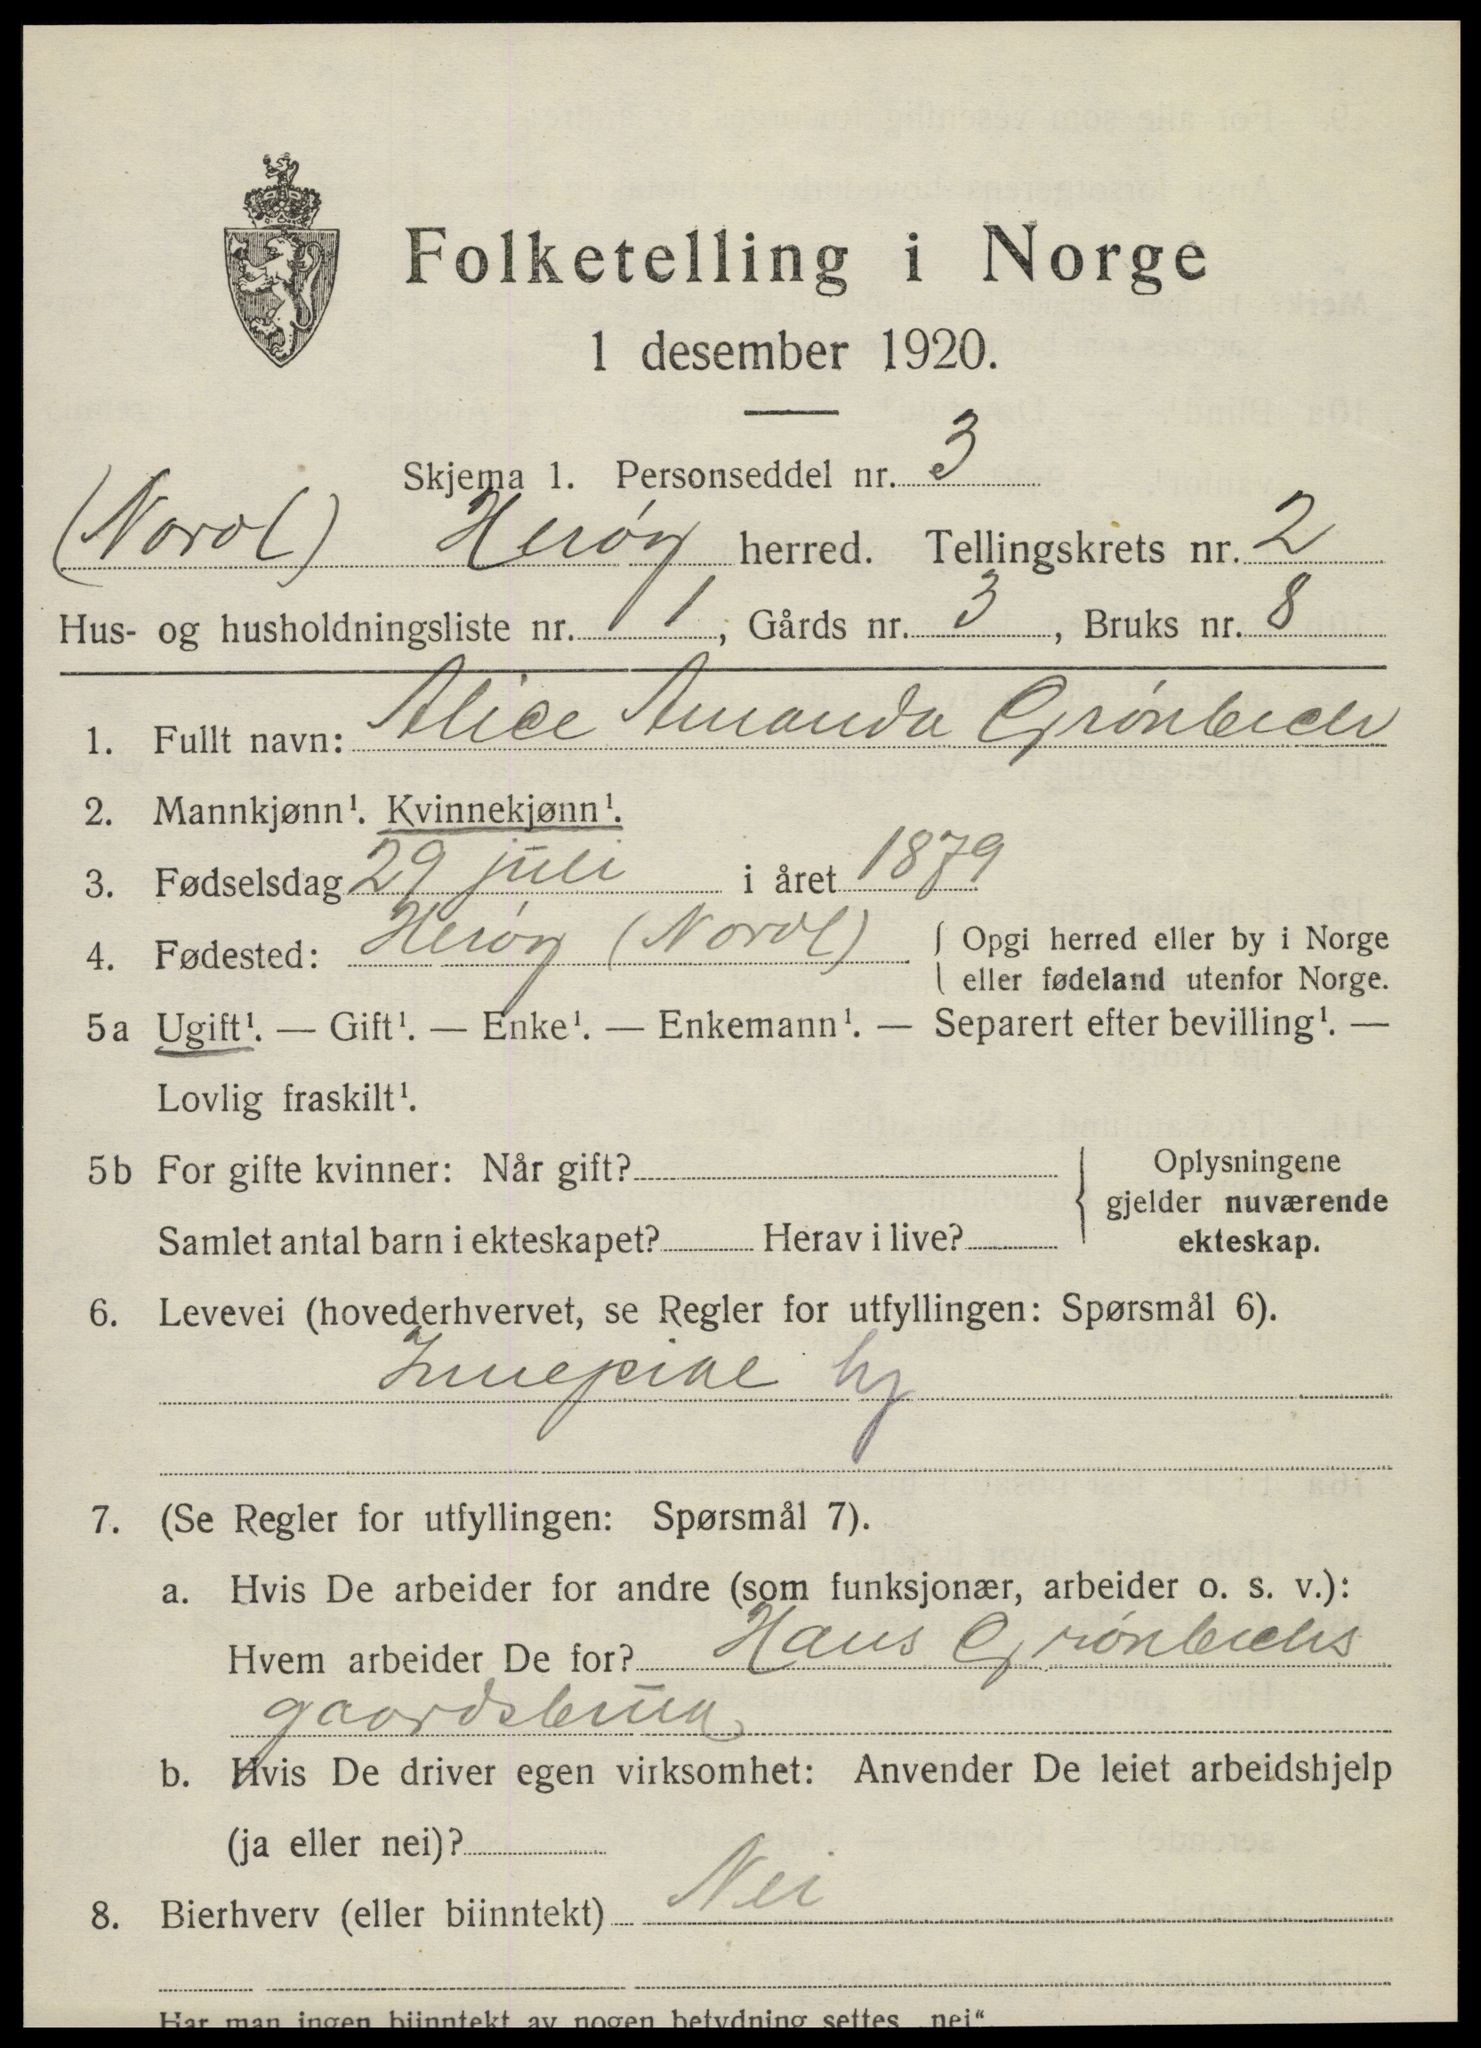 Folketelling i Norge
1 desember 1920.
Skjema 1. Personseddel nr. 3
(Nordl) Herøy herred. Tellingskrets nr. 2
Hus- og husholdningsliste nr. 1, Gårds nr. 3, Bruks nr. 8
1. Fullt navn: Alice Amanda Grønbech
2. Mannkjønn¹. Kvinnekjønn¹.
3. Fødselsdag 29 juli i året 1879
4. Fødested: Herøy (Nordl) { Opgi herred eller by i Norge
eller fødeland utenfor Norge.
5a Ugift¹. — Gift¹. — Enke¹. — Enkemann¹. — Separert efter bevilling¹. —
Lovlig fraskilt¹.
5b For gifte kvinner: Når gift?
Samlet antal barn i ekteskapet? Herav i live?
{ Oplysningene
gjelder nuværende
ekteskap.
6. Levevei (hovederhvervet, se Regler for utfyllingen: Spørsmål 6).
Innepike hj
7. (Se Regler for utfyllingen: Spørsmål 7).
a. Hvis De arbeider for andre (som funksjonær, arbeider o. s. v.):
Hvem arbeider De for? Hans Grønbechs
gaardsbruk
b. Hvis De driver egen virksomhet: Anvender De leiet arbeidshjelp
(ja eller nei)?
8. Bierhverv (eller biinntekt) Nei
Har man ingen biinntekt av nogen betydning settes „nei“